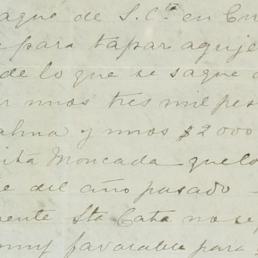 aque de S. Cª en Cu
para tapar aquje
de lo que se saque d
r unos tres mil pes
alma y unos $2000
ita Moncada quelo
e del año pasado —
ente Sta Cata no se
muy favorable para